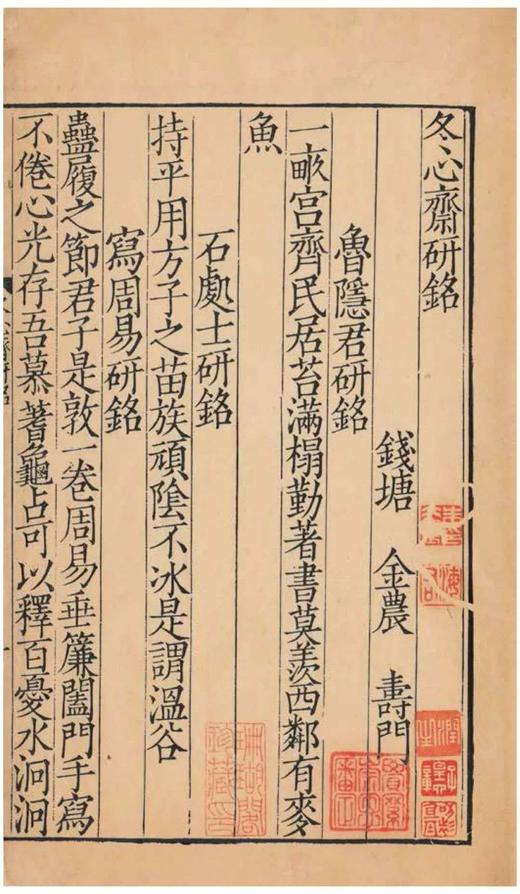 冬心齋研銘
錢塘 金農 壽門
魯隱君研銘
一畝宫齊民居苔滿榻勤著書莫羨西鄰有麥
魚
石處士研銘
持平用方子之苗族頑陰不冰是謂溫谷
寫周易研銘
蠱履之節君子是敦一卷周易垂簾闔門手寫
不倦心光存吾慕蓍龜占可以釋百憂水泂泂
珊瑚閣
珍藏印